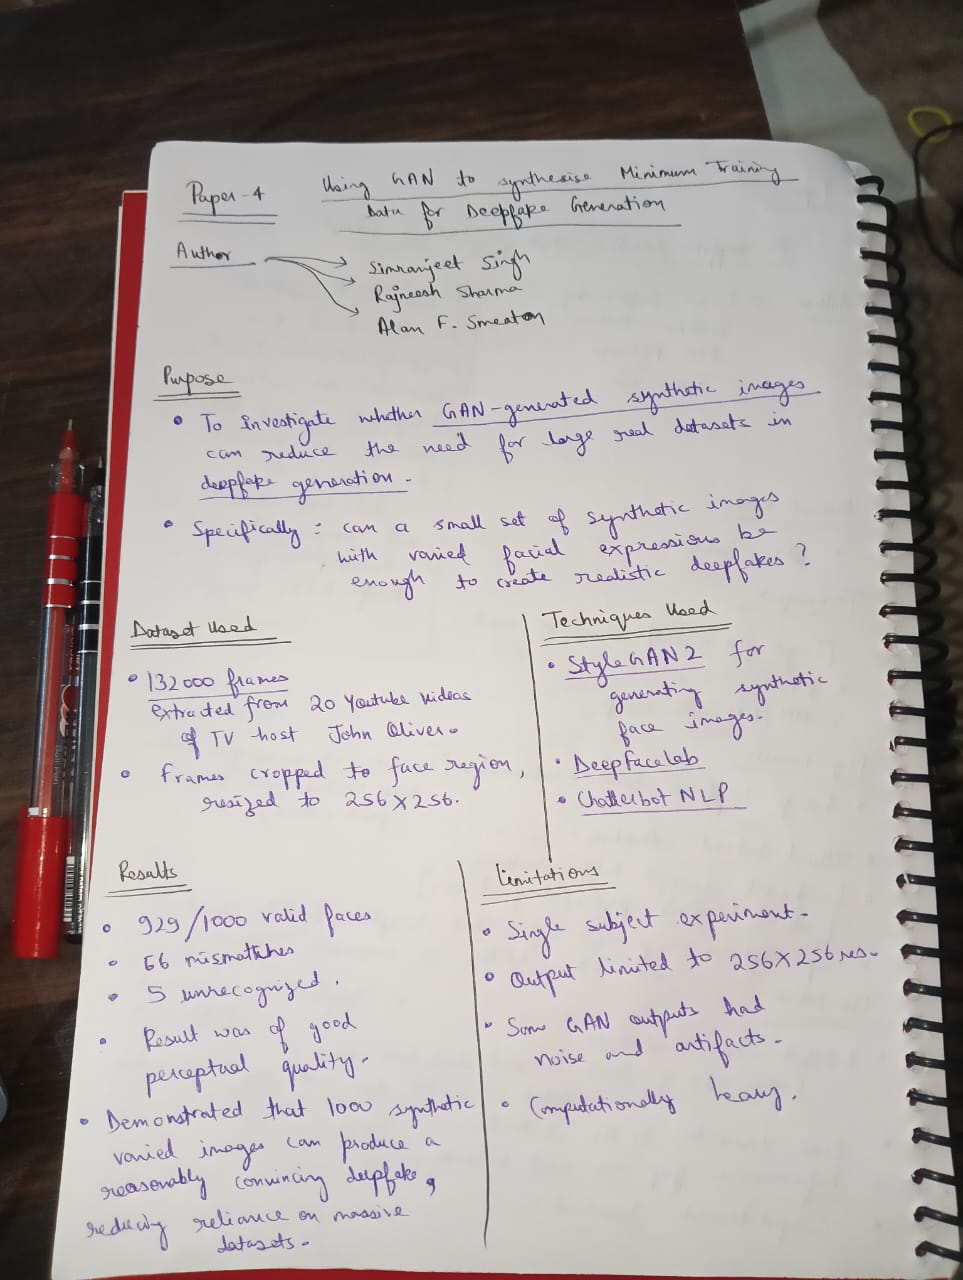 Paper-4
Using GAN to synthesise Minimum Training
Data for Deepfake Generation
Author
Simranjeet Singh
Rajneesh Sharma
Alan F. Smeaton
Purpose
• To investigate whether GAN-generated synthetic images
can reduce the need for large real datasets in
deepfake generation.
• Specifically: can a small set of synthetic images
with varied facial expressions be
enough to create realistic deepfakes?
Dataset Used
• 132000 frames
extracted from 20 Youtube videos
of TV host John Oliver.
• Frames cropped to face region,
resized to 256×256.
Techniques Used
• StyleGAN2 for
generating synthetic
face images.
• DeepFaceLab
• Chatterbot NLP
Results
• 929/1000 valid faces
• 66 mismatches
• 5 unrecognized.
• Result was of good
perceptual quality.
• Demonstrated that 1000 synthetic
varied images can produce a
reasonably convincing deepfake,
reducing reliance on massive
datasets.
Limitations
• Single subject experiment.
• Output limited to 256×256 res.
• Some GAN outputs had
noise and artifacts.
• Computationally heavy.